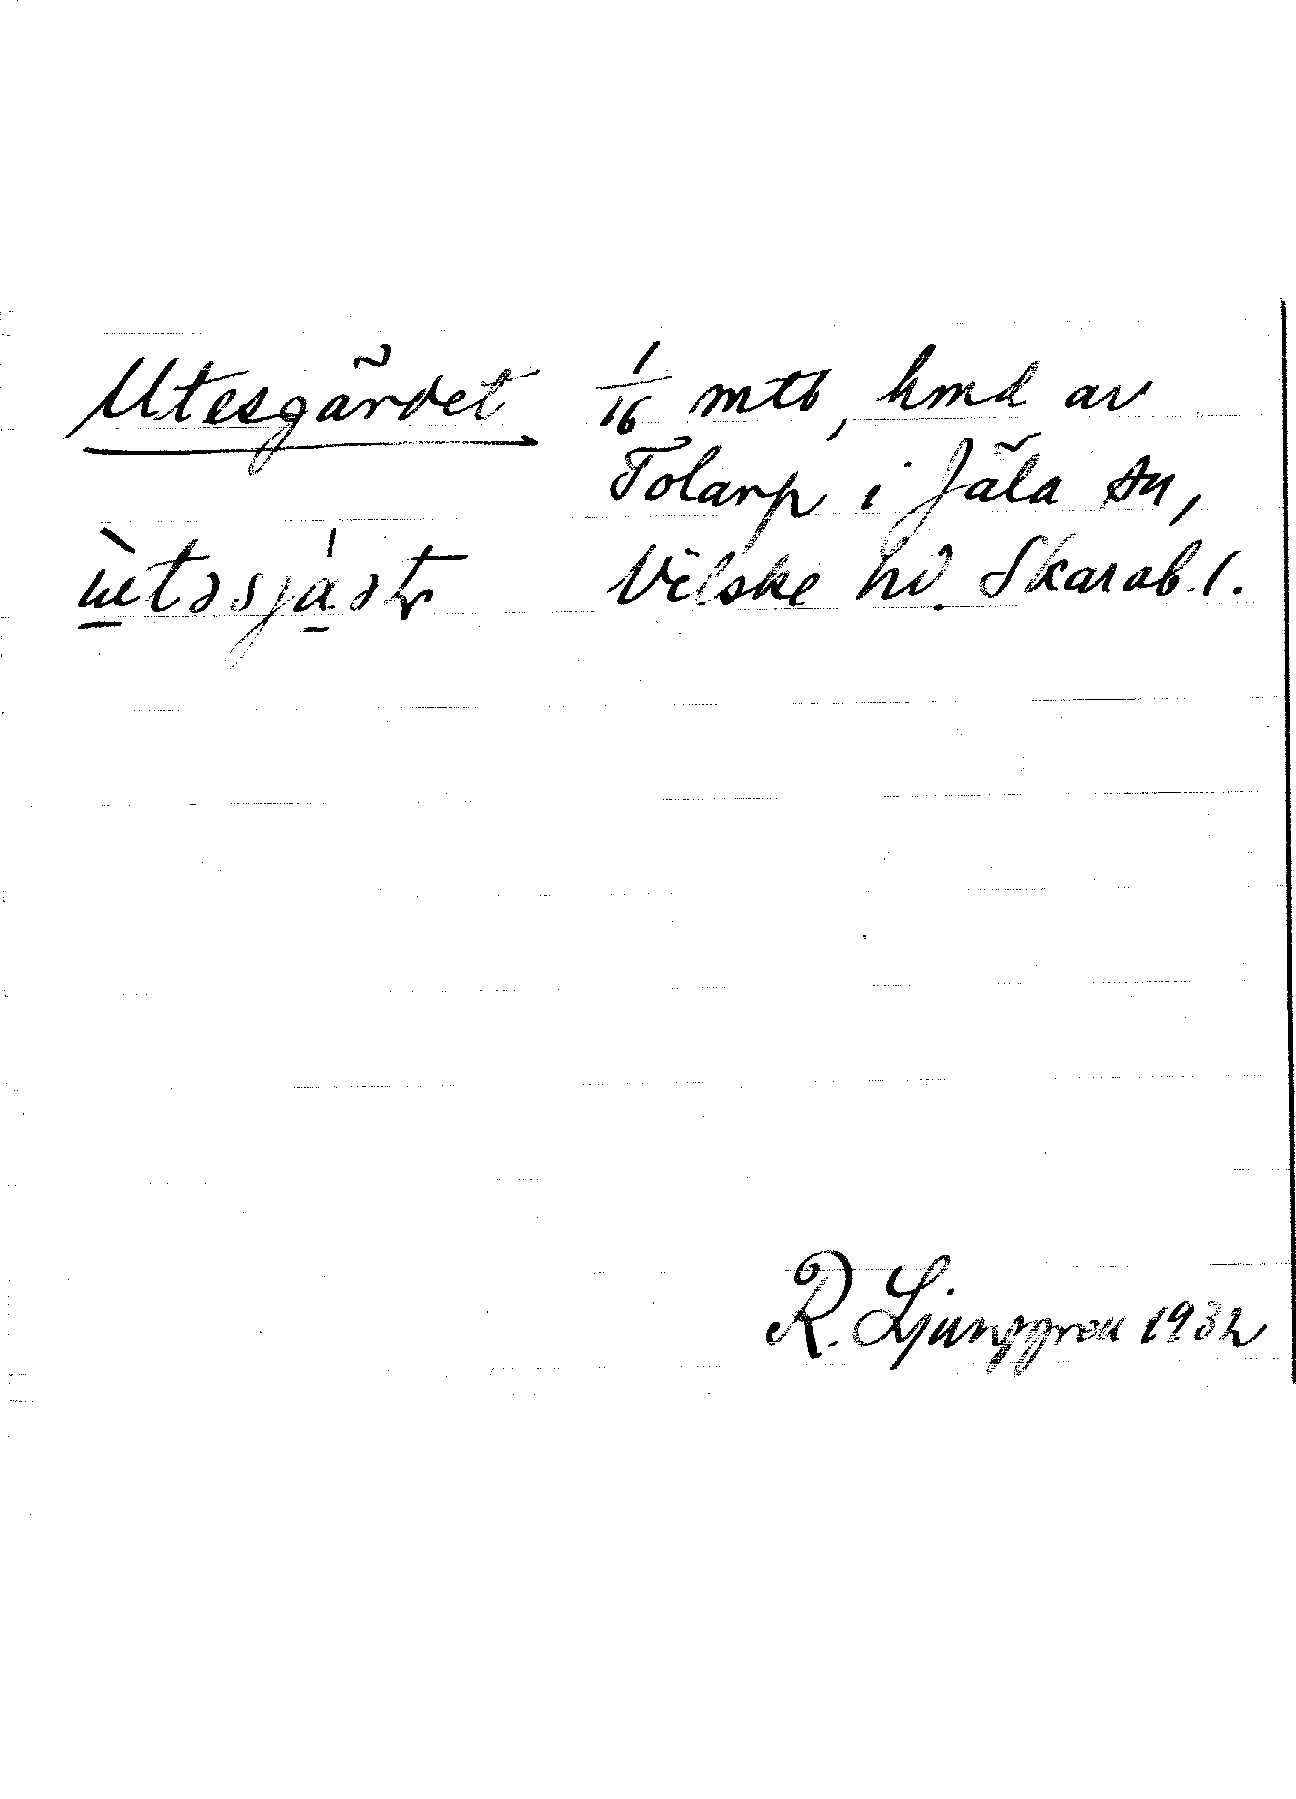 Utesgärdet 1/16 mtb, hmd av
Tolarp i Jäla sn,
Vilske hd. Skarab. l.
R. Ljunggren 1932